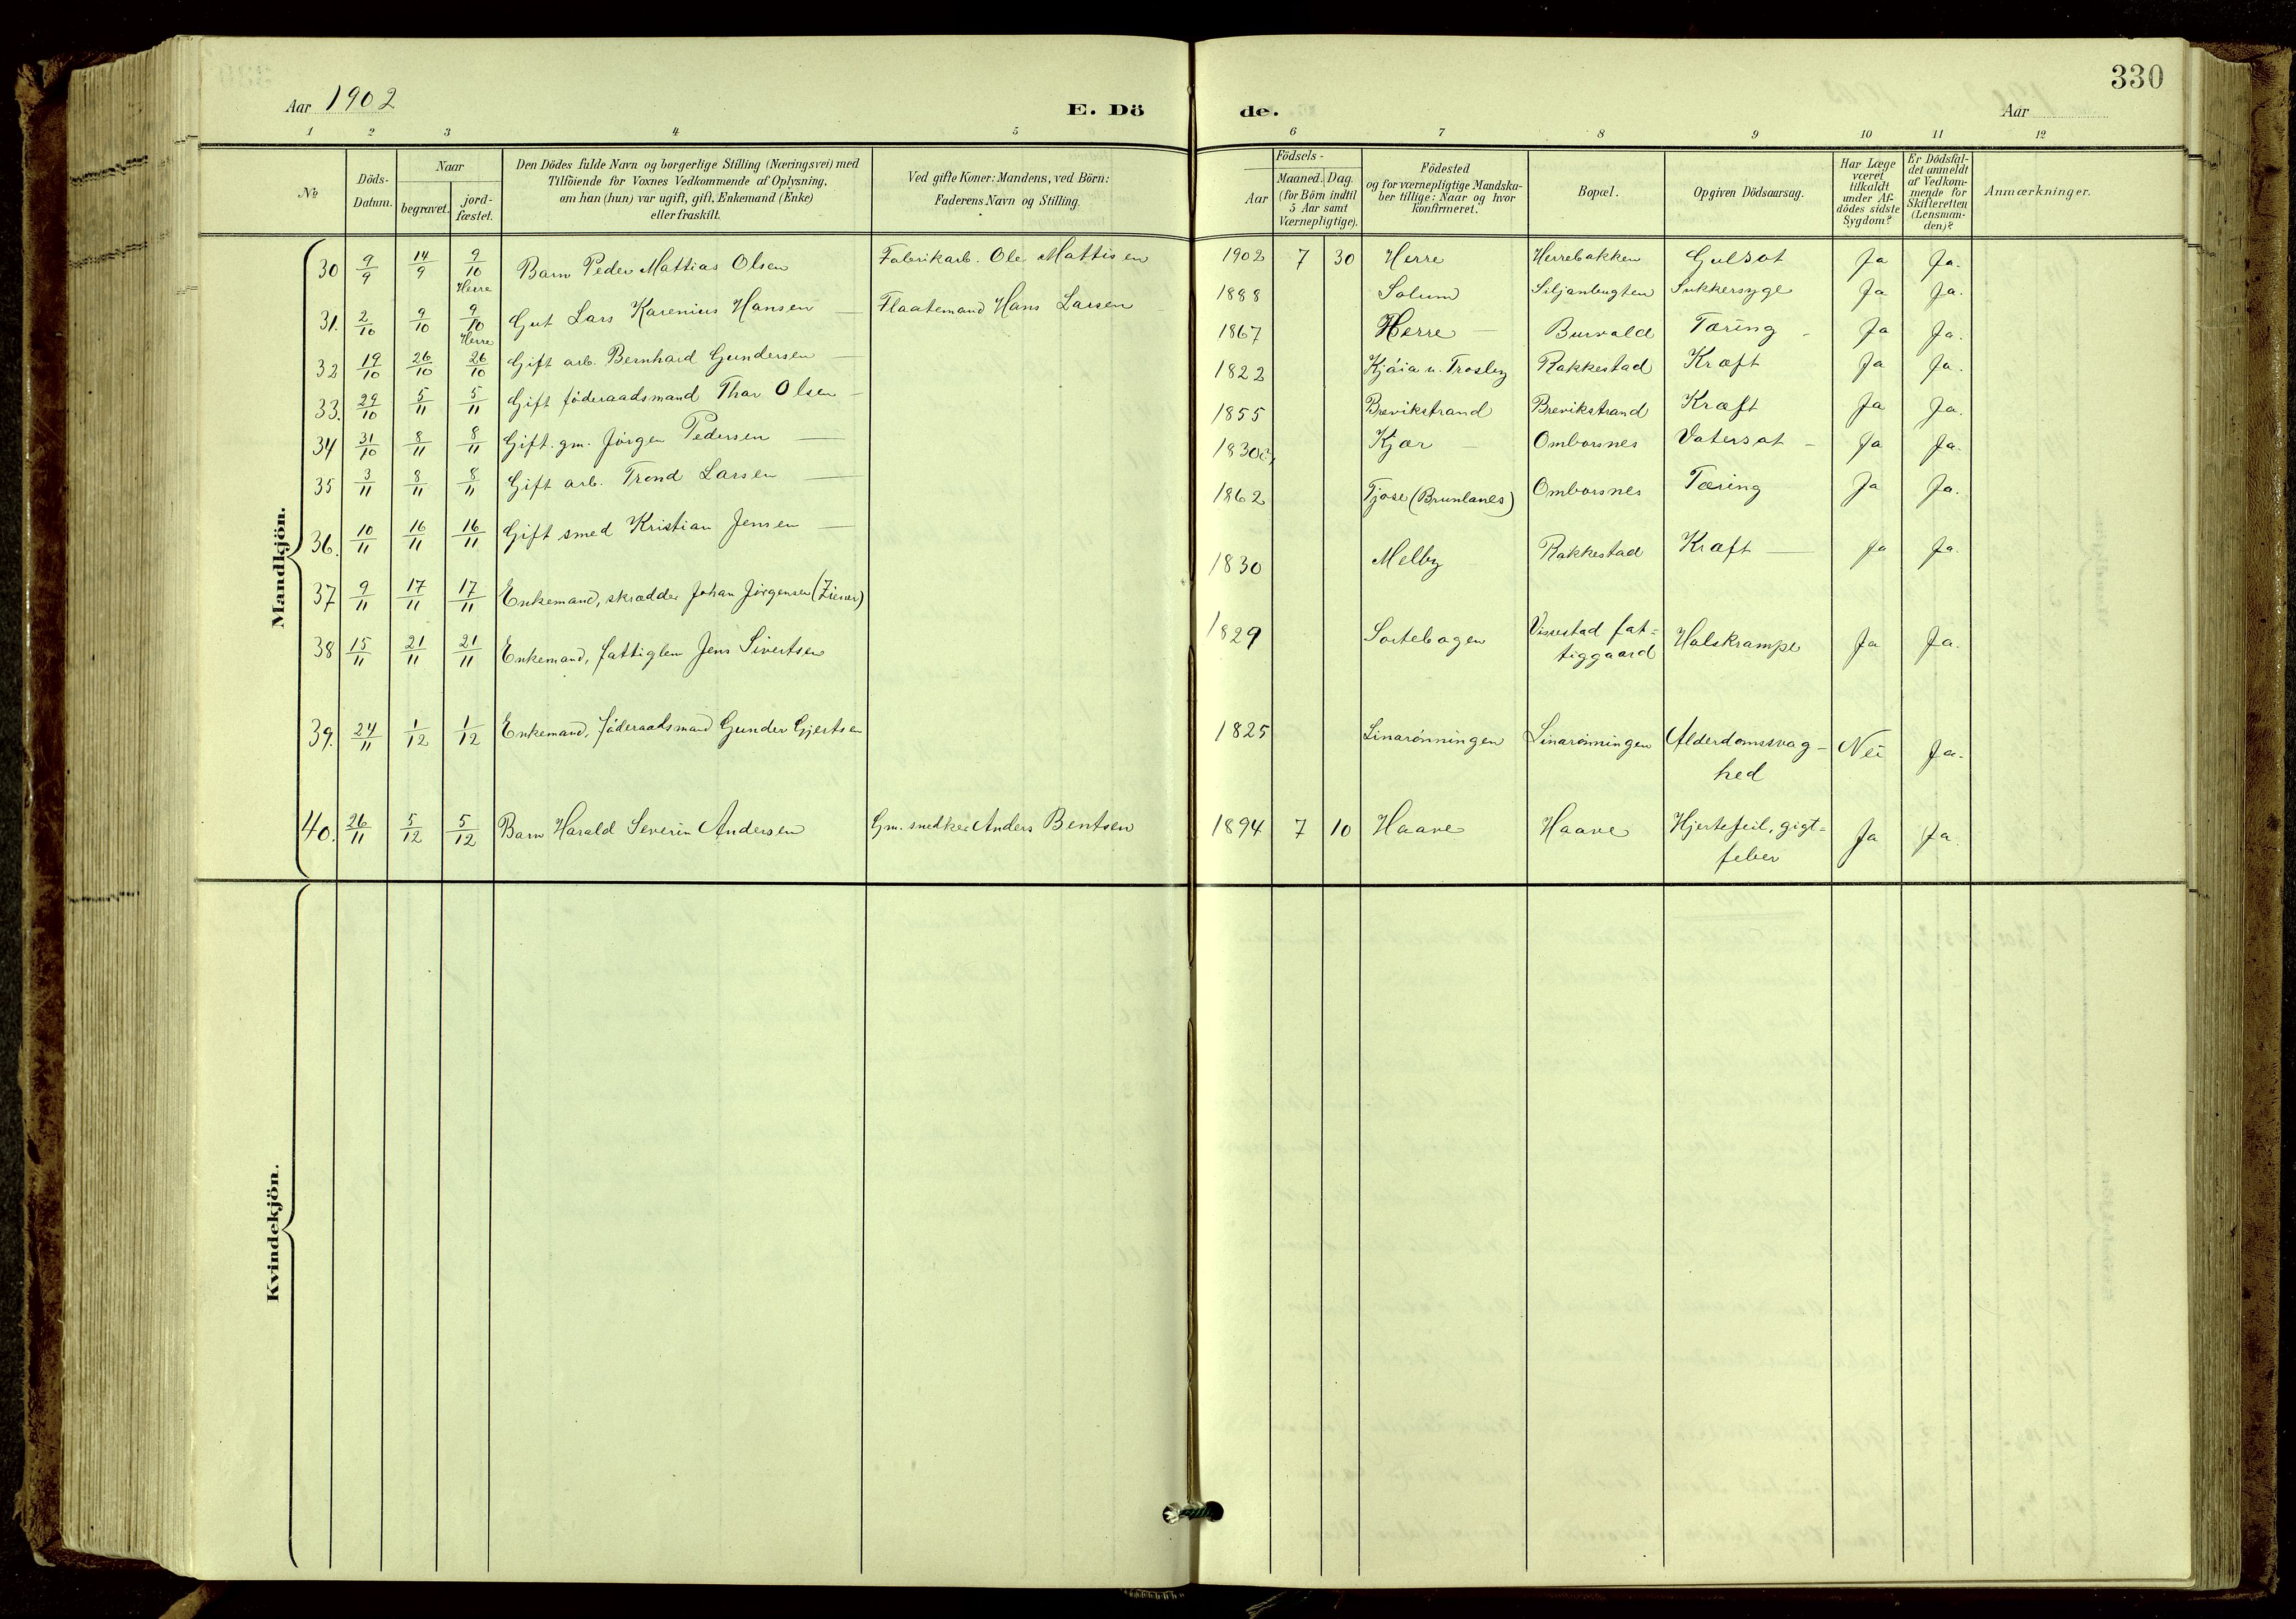 330
Aar 1902
E. Dö
de.
Aar
1 2 3 4 5
6 7 8 9 10 11 12
No
Döds-
Datum.
Naar
begravet.
jord-
fæstet.
Den Dödes fulde Navn og borgerlige Stilling (Næringsvei) med
Tilföiende for Voxnes Vedkommende af Oplysning.
om han (hun) var ugift, gift, Enkemand (Enke)
eller fraskilt.
Ved gifte Koner: Mandens, ved Börn:
Faderens Navn og Stilling.
Födsels-
Aar
Maaned. Dag.
(for Börn indtil
5 Aar samt
Værnepligtige).
Födested
og for værnepligtige Mandska-
ber tillige: Naar og hvor
konfirmeret.
Bopæl.
Opgiven Dödsaarsag.
Har Læge
været
tilkaldt
under Af-
dödes sidste
Sygdom?
Er Dödsfal-
det anmeldt
af Vedkom-
mende for
Skifteretten
(Lensman-
den)?
Anmærkninger.
Mandkjön.
30 9/9 14/9 9/10 Herre Barn Peder Mattias Olsen Fabrikarb. Ole Mattisen 1902 7 30 Herre Herrebakken Gulsot Ja Ja.
31. 2/10 9/10 9/10 Herre Gut Lars Karenius Hansen — Flaatemand Hans Larsen 1888 Solum Siljanbugten Sukkersyge Ja Ja.
32 19/10 26/10 26/10 Gift arb. Bernhard Gundersen — 1867 Herre — Burvald Tæring - Ja Ja.
33. 29/10 5/11 5/11 Gift föderaadsmand Thor Olsen - 1822 Kjáia u. Trosby Rakkestad Kræft Ja Ja.
34 31/10 8/11 8/11 Gift. gm. Jörgen Pedersen — 1855 Brevikstrand Brevikstrand Kræft Ja Ja.
35 3/11 8/11 8/11 Gift arb. Trond Larsen — 1830 Kjær — Omborsnes Vatersot - Ja Ja.
36. 10/11 16/11 16/11 Gift smed Kristian Jensen — 1862 Tjose (Brunlanes) Omborsnes Tæring Ja Ja.
37 9/11 17/11 17/11 Enkemand, skrædder Johan Jörgensen 1830 Melby Rakkestad Kræft — Ja Ja.
38 15/11 21/11 21/11 Enkemand, fattiglem Jens Sivertsen 1829 Sortebogen Vissestad fat=
tiggaard Halskrampe Ja Ja.
39. 24/11 1/12 1/12 Enkemand, föderaadsmand Gunder Gjertsen 1825 Linarönningen Linarönningen Alderdomssvag-
hed Nei Ja.
40. 26/11 5/12 5/12 Barn Harald Severin Andersen Gm. snedker Anders Bentsen 1894 7 10 Haave Haave Hjertefeil, gigt=
feber Ja Ja.
Kvindekjön.